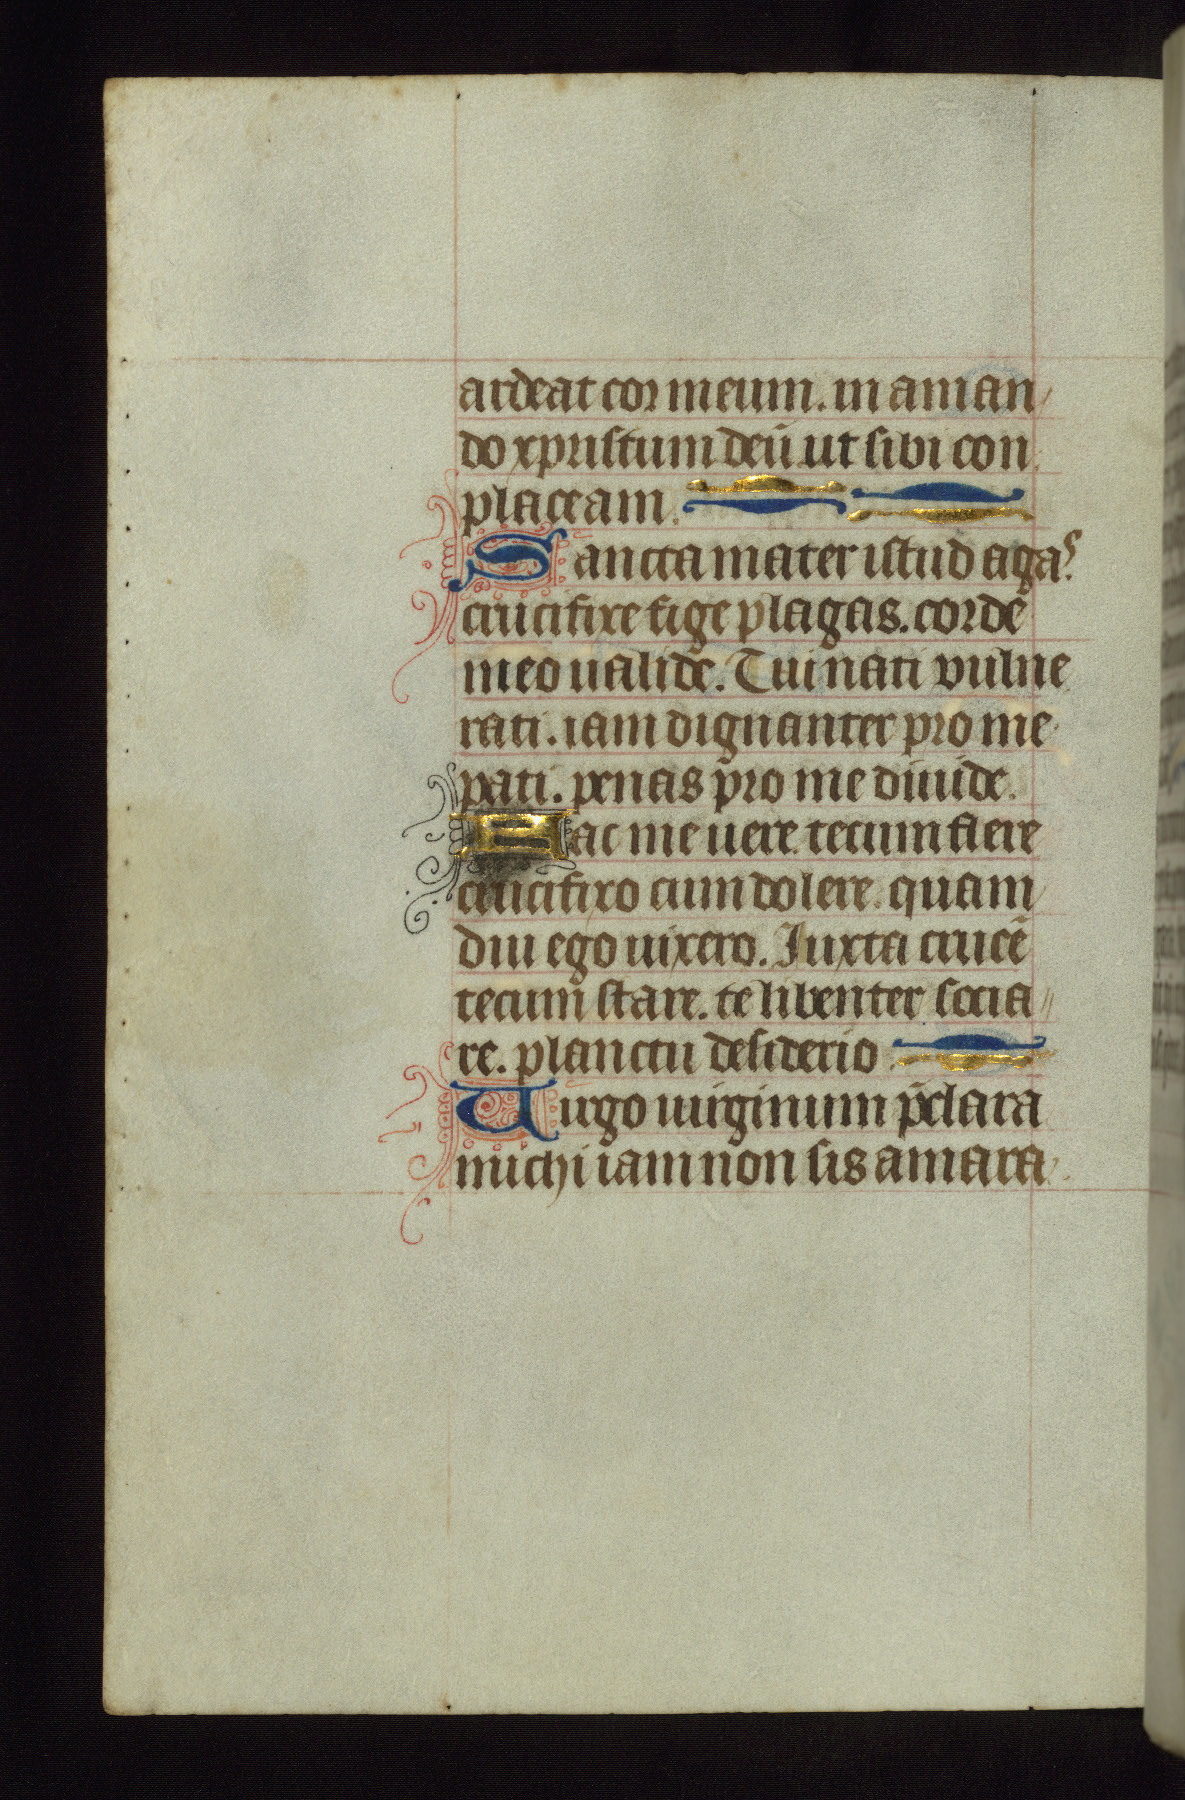 ardeat cor meum. in aman
do xpristum deū ut sibi con
placeam.
Sancta mater istud agas.
crucifixe fige plagas. corde
meo ualide. Tui nati vulne
rati. iam dignanter pro me
pati. penas pro me diuide.
Fac me uere tecum flere
crucifixo cum dolere. quam
diu ego uixero. Iuxta crucē
tecum stare. te libenter socia
re. planctu desiderio
Uirgo uirginum p̄clara
michi iam non sis amara.